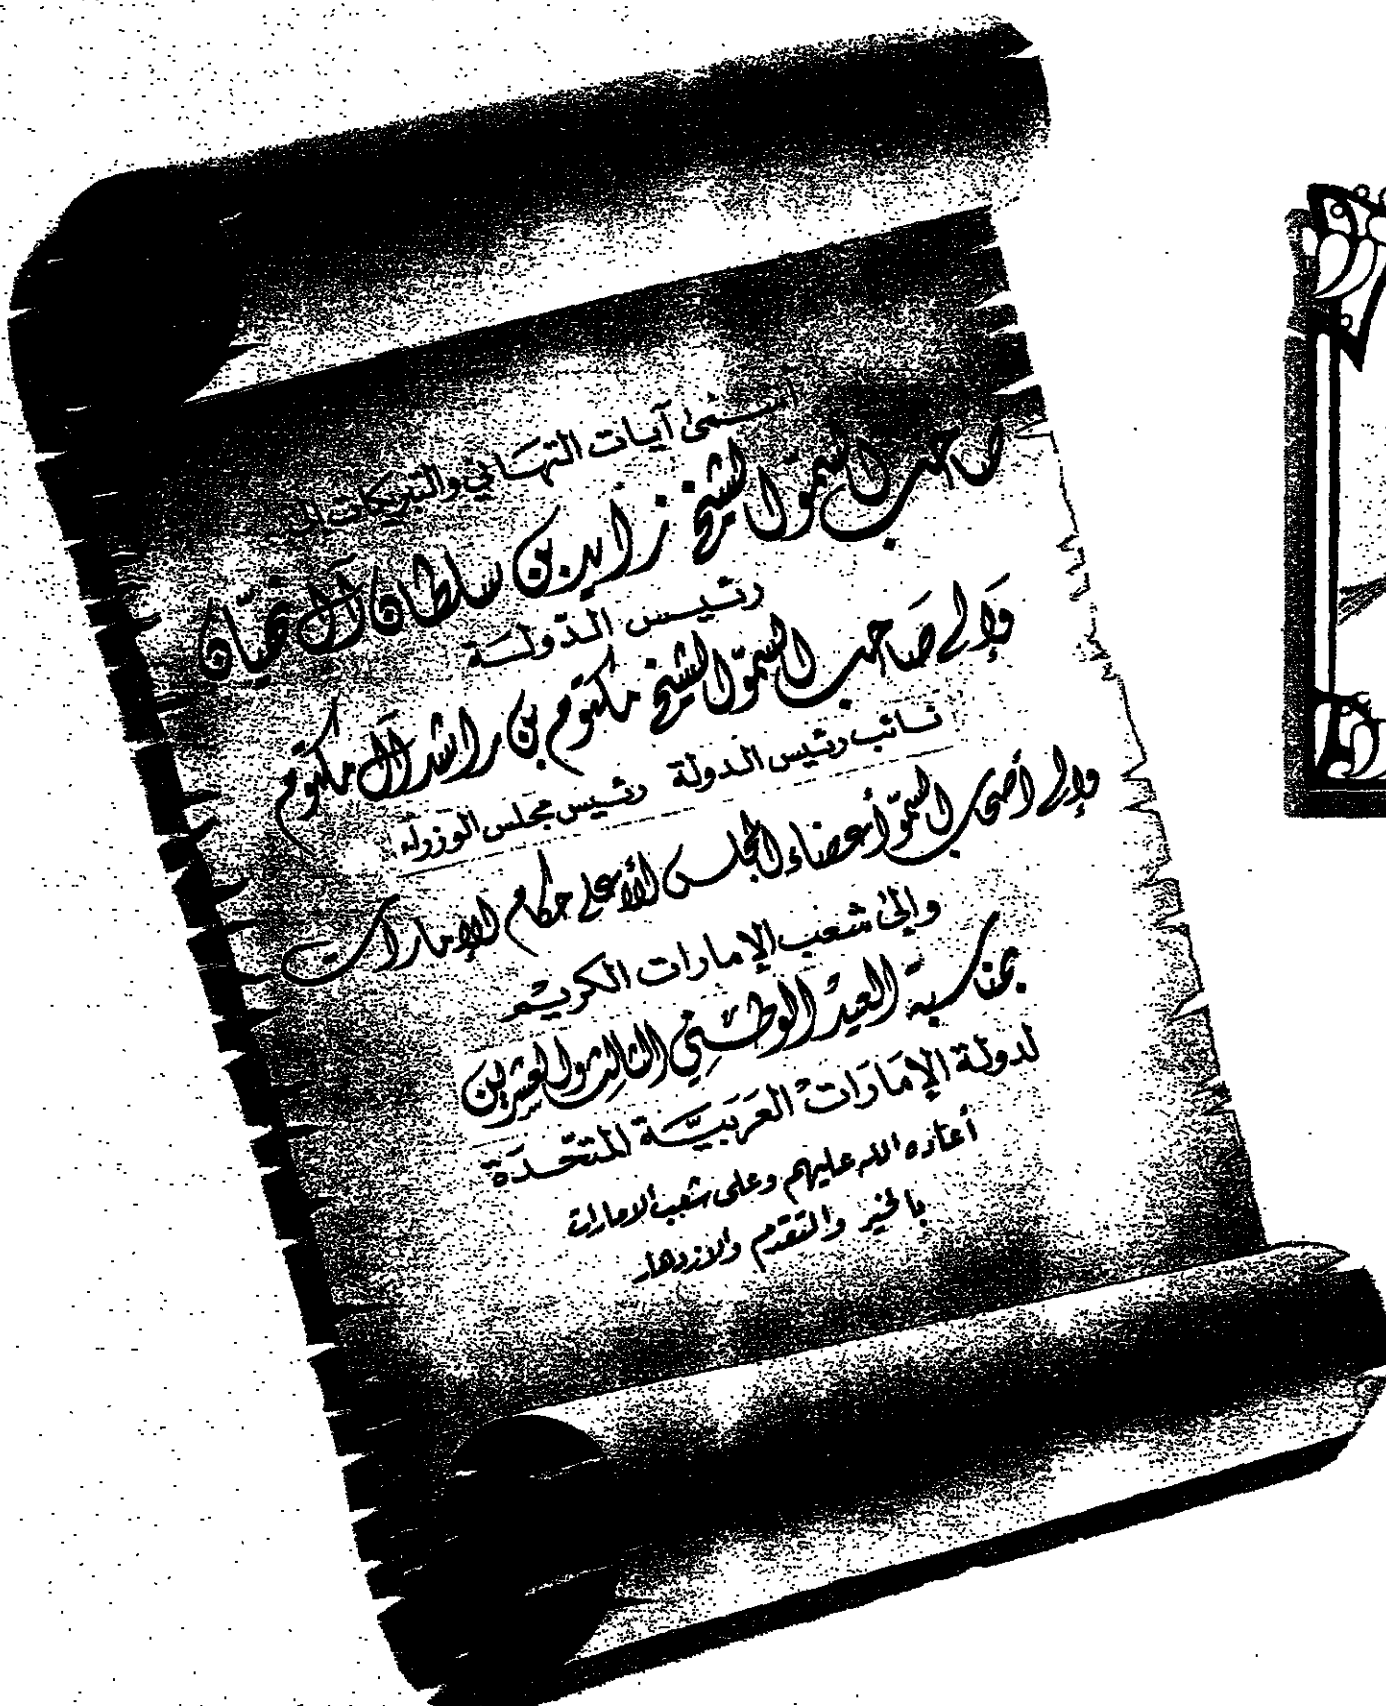 أسمى آيات التهاني والتبريكات إلى
صاحب السمو الشيخ زايد بن سلطان آل نهيان
رئيس الدولة
وإلى صاحب السمو الشيخ مكتوم بن راشد آل مكتوم
نائب رئيس الدولة رئيس مجلس الوزراء
وإلى أصحاب السمو أعضاء المجلس الأعلى حكام الإمارات
وإلى شعب الإمارات الكريم
بمناسبة العيد الوطني الثالث والعشرين
لدولة الإمارات العربية المتحدة
أعاده الله عليهم وعلى شعب الامارات
بالخير والتقدم والازدهار